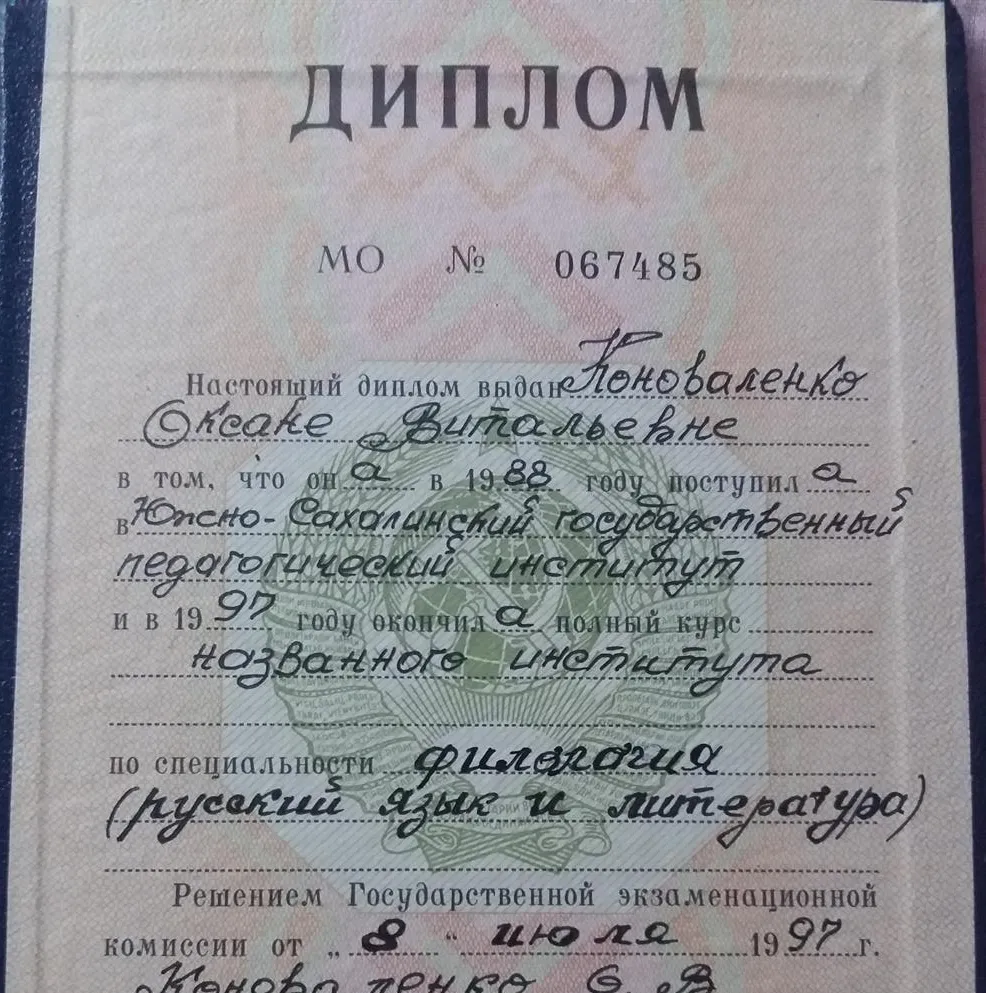 ДИПЛОМ
МО № 067485
Настоящий диплом выдан Коноваленко
Оксане Витальевне
в том, что он а в 1988 году поступил а
в Южно-Сахалинский государственный
педагогический институт
и в 1997 году окончил а полный курс
названного института
по специальности филология
(русский язык и литература)
Решением Государственной экзаменационной
комиссии от „ 8 “ июля 1997 г.
Коноваленко О. В.